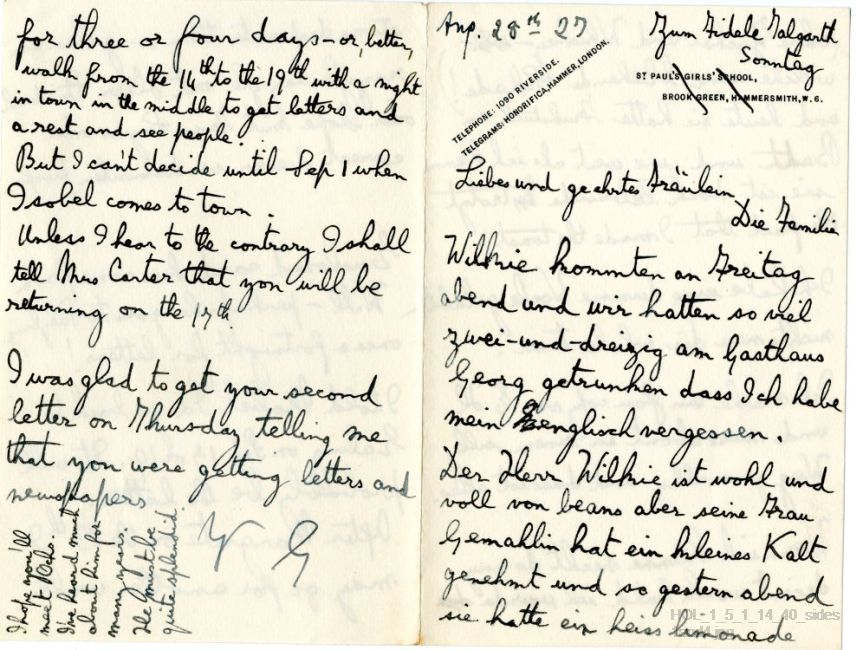 for three or four days – or, better,
walk from the 14th to the 19th with a night
in town in the middle to get letters and
a rest and see people.
But I can't decide until Sep 1 when
Isobel comes to town.
Unless I hear to the contrary I shall
tell Mrs Carter that you will be
returning on the 17th.
I was glad to get your second
letter on Thursday telling me
that you were getting letters and
newspapers
Y G
I hope you'll
meet
I've heard much
about him for
many years.
He must be
quite splendid.
Aug. 28th 27
Zum Fidele Galganth
Sonntag
TELEPHONE: 1090 RIVERSIDE.
TELEGRAMS: HONORIFICA, HAMMER, LONDON.
ST PAUL'S GIRLS' SCHOOL,
BROOK GREEN, HAMMERSMITH, W. 6.
Liebes und geehrtes Fräulein
Die Familie
Wilkie kommten an Freitag
abend und wir hatten so viel
zwei-und-dreizig am Gasthaus
Georg getrunken dass Ich habe
mein englisch vergessen.
Der Herr Wilkie ist wohl und
voll von beans aber seine Frau
Gemahlin hat ein kleines Kalt
genehmt und so gestern abend
sie hatte ein heiss limonade
HOL_1_5_1_14_40_sides